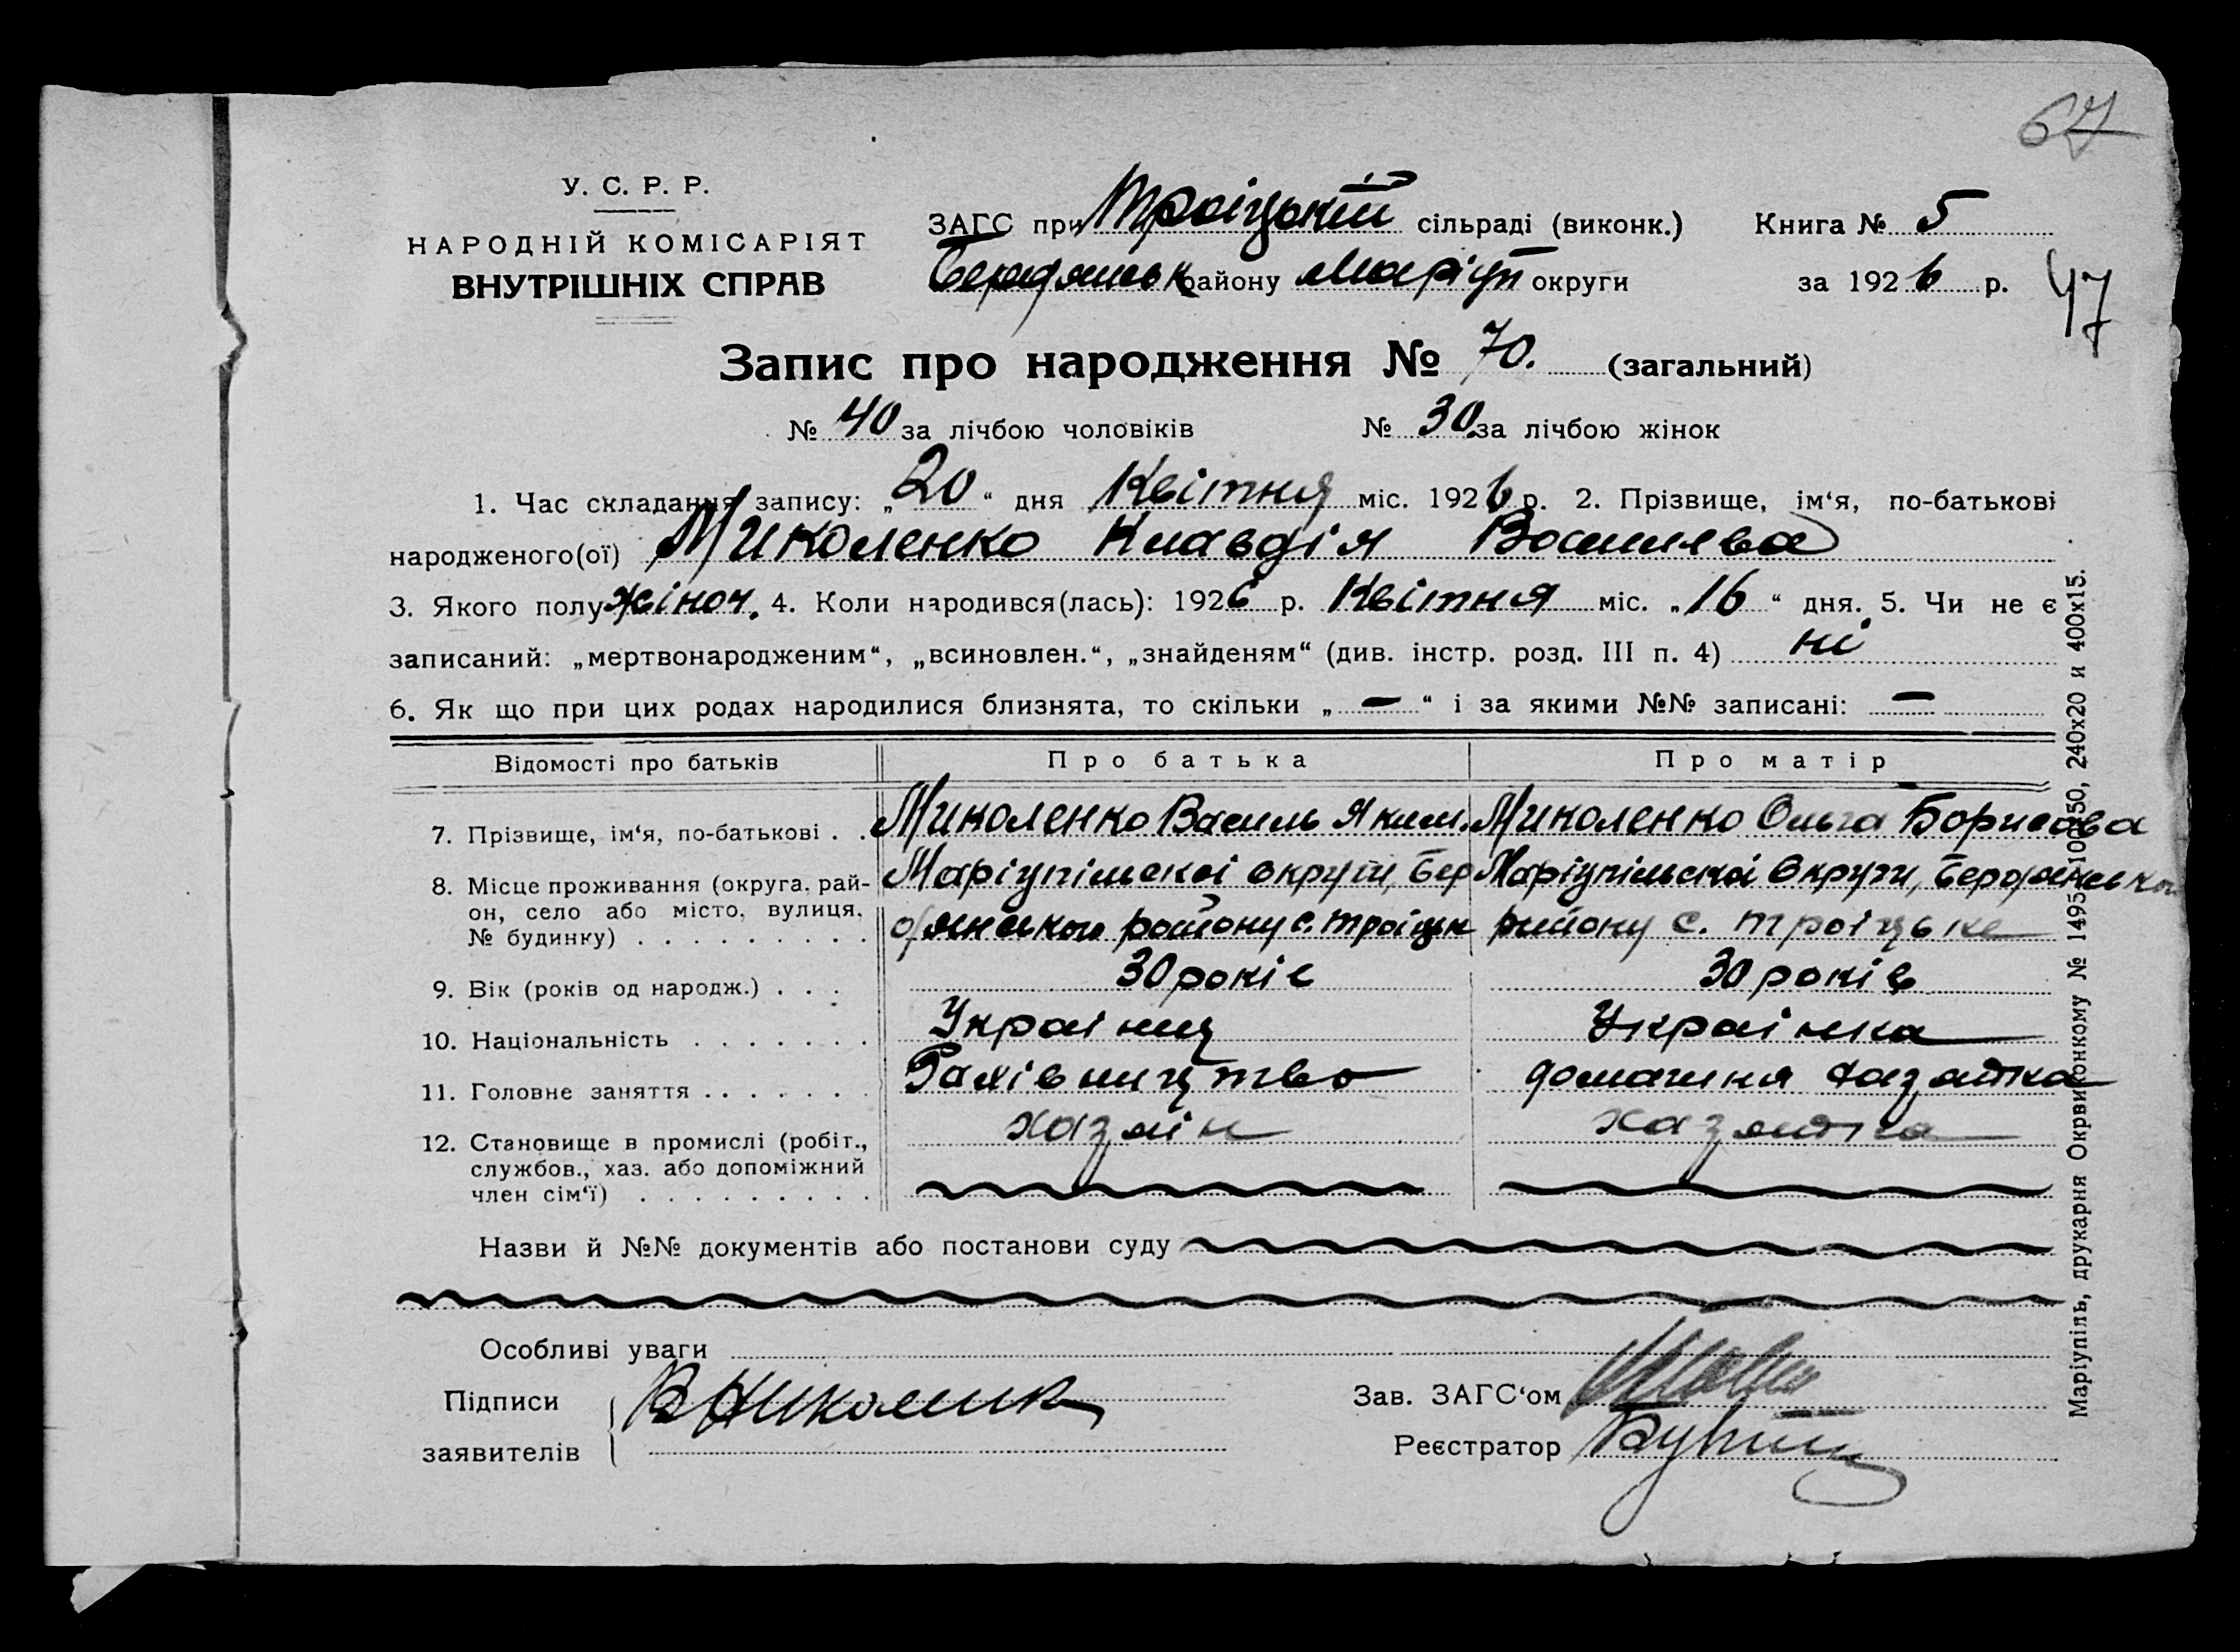 67
У. С. Р. Р.
НАРОДНІЙ КОМІСАРІЯТ
ВНУТРІШНІХ СПРАВ
ЗАГС при Троіцькій сільраді (виконк.) Книга № 5
Бердянськ району Маріуп округи за 1926 р.
47
Запис про народження № 70. (загальний)
№ 40 за лічбою чоловіків № 30 за лічбою жінок
1. Час складання запису: „20“ дня Квітня міс. 1926 р. 2. Прізвище, ім‘я, по-батькові
народженого(ої) Миколенко Клавдія Васильева
3. Якого полу жіноч. 4. Коли народився(лась): 1926 р. Квітня міс. „16“ дня. 5. Чи не є
записаний: „мертвонародженим“, „всиновлен.“, „знайденям“ (див. інстр. розд. III п. 4) ні
6. Як що при цих родах народилися близнята, то скільки „—“ і за якими №№ записані: —
Відомості про батьків Про батька Про матір
7. Прізвище, ім‘я, по-батькові . . Миколенко Василь Яким. Миколенко Ольга Борисова
8. Місце проживання (округа, рай- Маріупільскоі округи, Бер Маріупільскоі Округи, Бердянсько
он, село або місто, вулиця, дянського району с. Троіцьк району с. Троіцьке
№ будинку) . . . . . . . . .
9. Вік (років од народж.) . . . 30 років 30 років
10. Національність . . . . . . . Украінц Украінка
11. Головне заняття . . . . . . . домашня хазяйка
12. Становище в промислі (робіт., хазяін хазяйка
службов., хаз. або допоміжний
член сім‘ї) . . . . . . . . .
Назви й №№ документів або постанови суду
Особливі уваги
Підписи Зав. ЗАГС‘ом
заявителів Реєстратор
Маріупіль, друкарня Окрвиконкому № 1495-10050, 240х20 и 400х15.